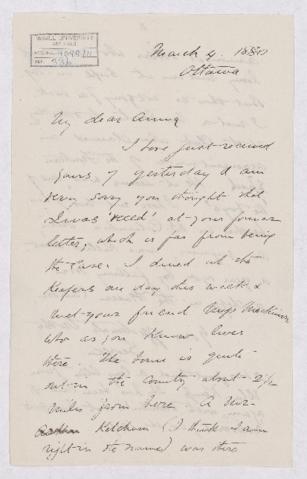 McGILL UNIVERSITY
ARCHIVES
ACC. NO.
REF.
March 4. 1880
Ottawa
My dear Anna
I have just received
yours of yesterday & am
very sorry you thought that
I was 'vexed' at your former
letter, which is far from being
the case. I dined at the
Keefers one day this week &
met your friend Miss
who as you know lives
there. The house is quite
out in the country about 2½
miles from here. A Mr.
Ketchum (I think I am
right in the name) was there